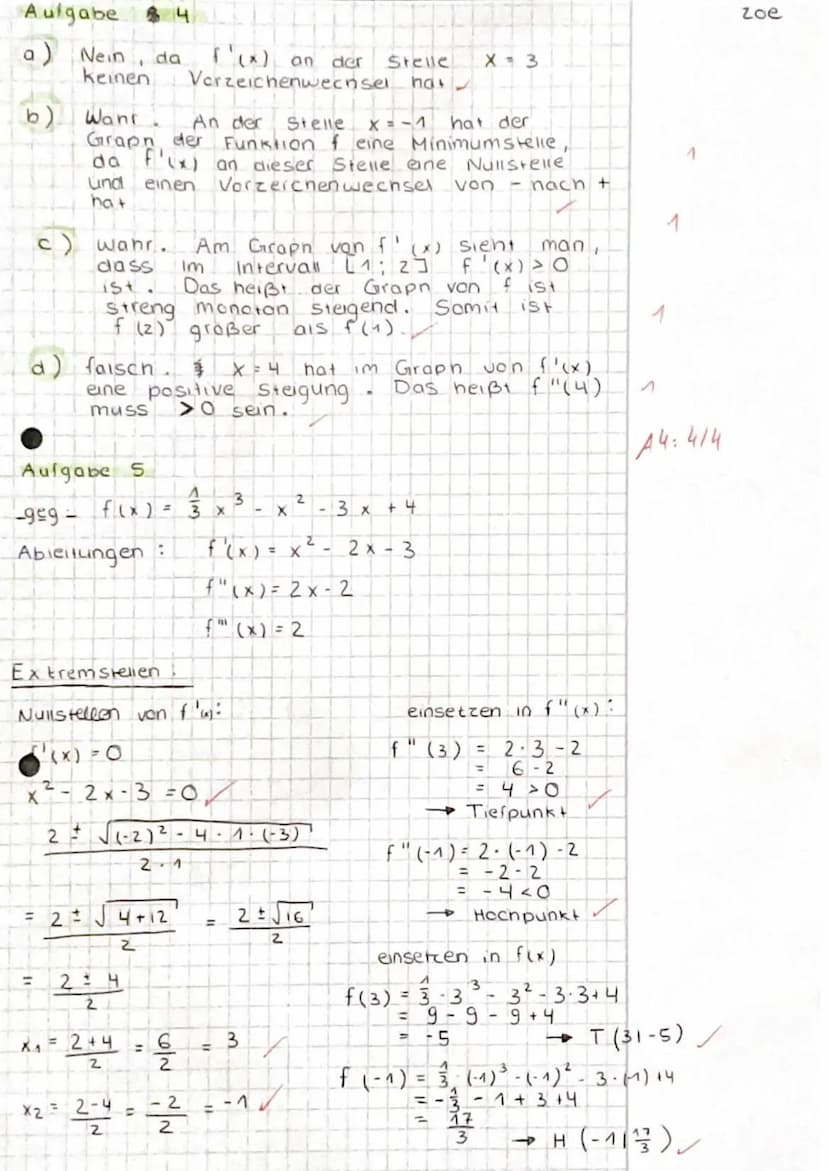 Aufgabe 4
zoe
a) Nein, da f'(x) an der Stelle x = 3
keinen Vorzeichenwechsel hat
b) Wahr. An der Stelle x = -1 hat der
Graph der Funktion f eine Minimumstelle,
da f'(x) an dieser Stelle eine Nullstelle
und einen Vorzeichenwechsel von - nach +
hat
1
1
c) wahr. Am Graph von f'(x) sieht man,
dass im Intervall [1; 2] f'(x) > 0
ist. Das heißt der Graph von f ist
streng monoton steigend. Somit ist
f(2) größer als f(1).
1
d) falsch. x = 4 hat im Graph von f'(x)
eine positive Steigung. Das heißt f"(4)
muss > 0 sein.
1
A4: 4/4
Aufgabe 5
-geg- f(x) = 1/3 x³ - x² - 3x + 4
Ableitungen: f'(x) = x² - 2x - 3
f"(x) = 2x - 2
f"'(x) = 2
Extremstellen:
Nullstellen von f'(x):
f'(x) = 0
x² - 2x - 3 = 0
2 ± √((-2)² - 4 · 1 · (-3)) / 2 · 1
= 2 ± √(4+12) / 2 = 2 ± √16 / 2
= 2 ± 4 / 2
x₁ = 2+4 / 2 = 6/2 = 3
x₂ = 2-4 / 2 = -2/2 = -1
einsetzen in f"(x):
f"(3) = 2 · 3 - 2
= 6 - 2
= 4 > 0
→ Tiefpunkt
f"(-1) = 2 · (-1) - 2
= -2 - 2
= -4 < 0
→ Hochpunkt
einsetzen in f(x)
f(3) = 1/3 · 3³ - 3² - 3·3 + 4
= 9 - 9 - 9 + 4
= -5 → T(3|-5)
f(-1) = 1/3 · (-1)³ - (-1)² - 3 · (-1) + 4
= -1/3 - 1 + 3 + 4
= 17/3 → H(-1|17/3)